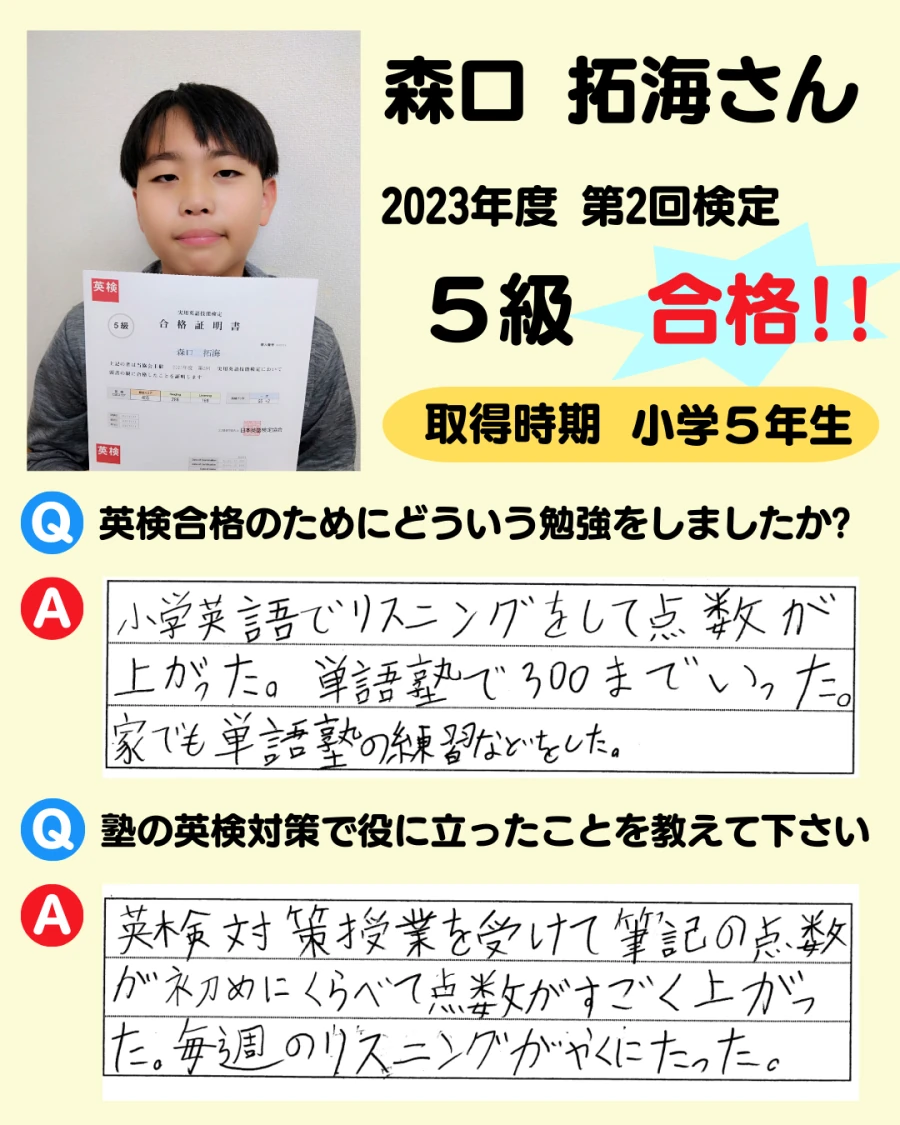 森口 拓海さん
2023年度 第2回検定
5級 合格!!
取得時期 小学5年生
英検
5級
実用英語技能検定
合格証明書
森口 拓海
英検
Q 英検合格のためにどういう勉強をしましたか?
A 小学英語でリスニングをして点数が
上がった。単語塾で300までいった。
家でも単語塾の練習などをした。
Q 塾の英検対策で役に立ったことを教えて下さい
A 英検対策授業を受けて筆記の点数
が初めにくらべて点数がすごく上がっ
た。毎週のリスニングがやくにたった。